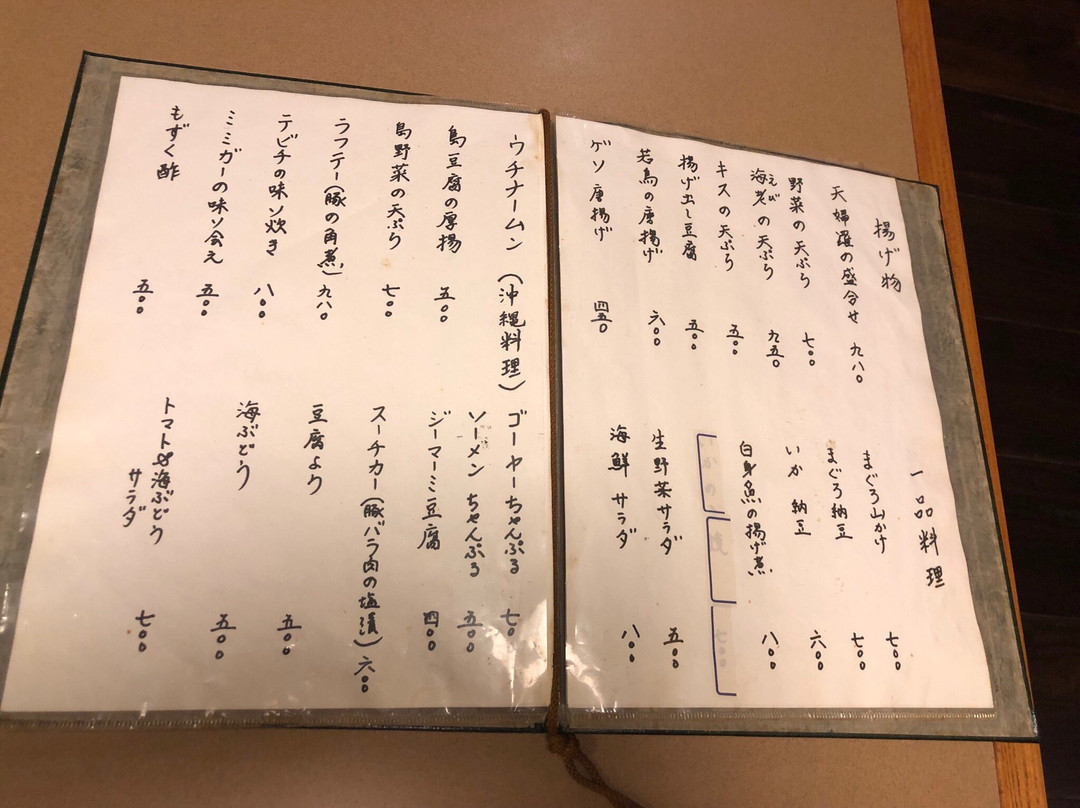 揚げ物
天婦羅の盛合せ 九八〇
野菜の天ぷら 七〇〇
海老の天ぷら 九五〇
えび
キスの天ぷら 五〇〇
揚げ出し豆腐 五〇〇
若鳥の唐揚げ 六〇〇
ゲソ唐揚げ 四五〇
一品料理
まぐろ山かけ 七〇〇
まぐろ納豆 七〇〇
いか 納豆 六〇〇
白身魚の揚げ煮 八〇〇
生野菜サラダ 五〇〇
海鮮サラダ 八〇〇
ウチナームン (沖縄料理)
島豆腐の厚揚 五〇〇
島野菜の天ぷら 七〇〇
ラフテー(豚の角煮) 九八〇
テビチの味ソ炊き 八〇〇
ミミガーの味ソ会え 五〇〇
もずく酢 五〇〇
ゴーヤーちゃんぷる 七〇
ソーメン ちゃんぷる 五〇〇
ジーマーミ豆腐 四〇〇
スーチカー(豚バラ肉の塩漬) 六〇〇
豆腐よう 五〇〇
海ぶどう 五〇〇
トマト&海ぶどう
サラダ 七〇〇